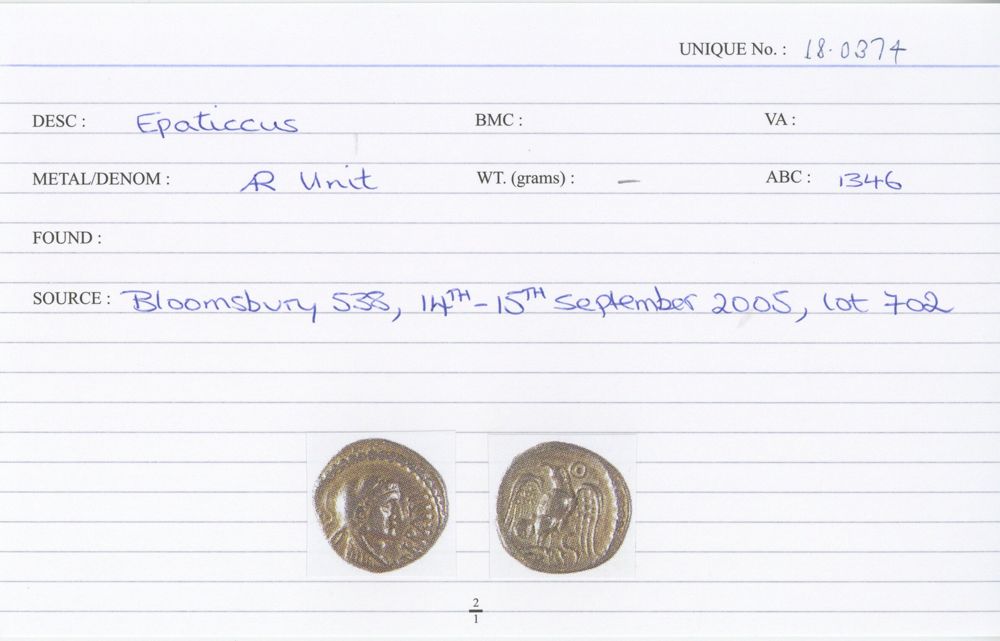 UNIQUE No. : 18.0374
DESC : Epaticcus BMC : VA :
METAL/DENOM : AR Unit WT. (grams) : — ABC : 1346
FOUND :
SOURCE : Bloomsbury 538, 14TH-15TH September 2005, lot 702
2
1